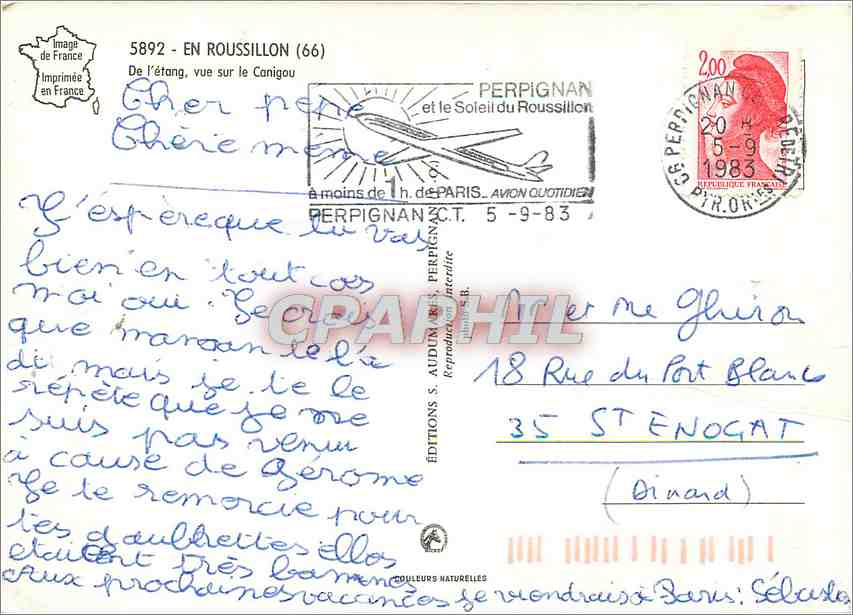 Image
de France
Imprimée
en France
5892 - EN ROUSSILLON (66)
De l'étang, vue sur le Canigou
PERPIGNAN
et le Soleil du Roussillon
à moins de 1 h. de PARIS_ AVION QUOTIDIEN
PERPIGNAN C.T. 5 -9-83
2,00
REPUBLIQUE FRANÇAISE
PERPIGNAN
20 H
5-9
1983
PYR.OR
Cher père
Chère mème
J'espère que tu vas
bien en tout cas
moi oui. Je crois
que maman te l'a
di mais je te le
répète que je me
suis pas venu
à cause de Gérome
Je te remercie pour
tes d'aubrettes elles
etaient très bonnes
aux prochaines vacances je viendrais à Paris: Sébastien
EDITIONS S. AUDUMARES, PERPIGNAN
Reproduction interdite
photo S.B.
CPARPHIL
Mr et Me Ghiron
18 Rue du Port Blanc
35 ST ENOGAT
(Dinard)
COULEURS NATURELLES